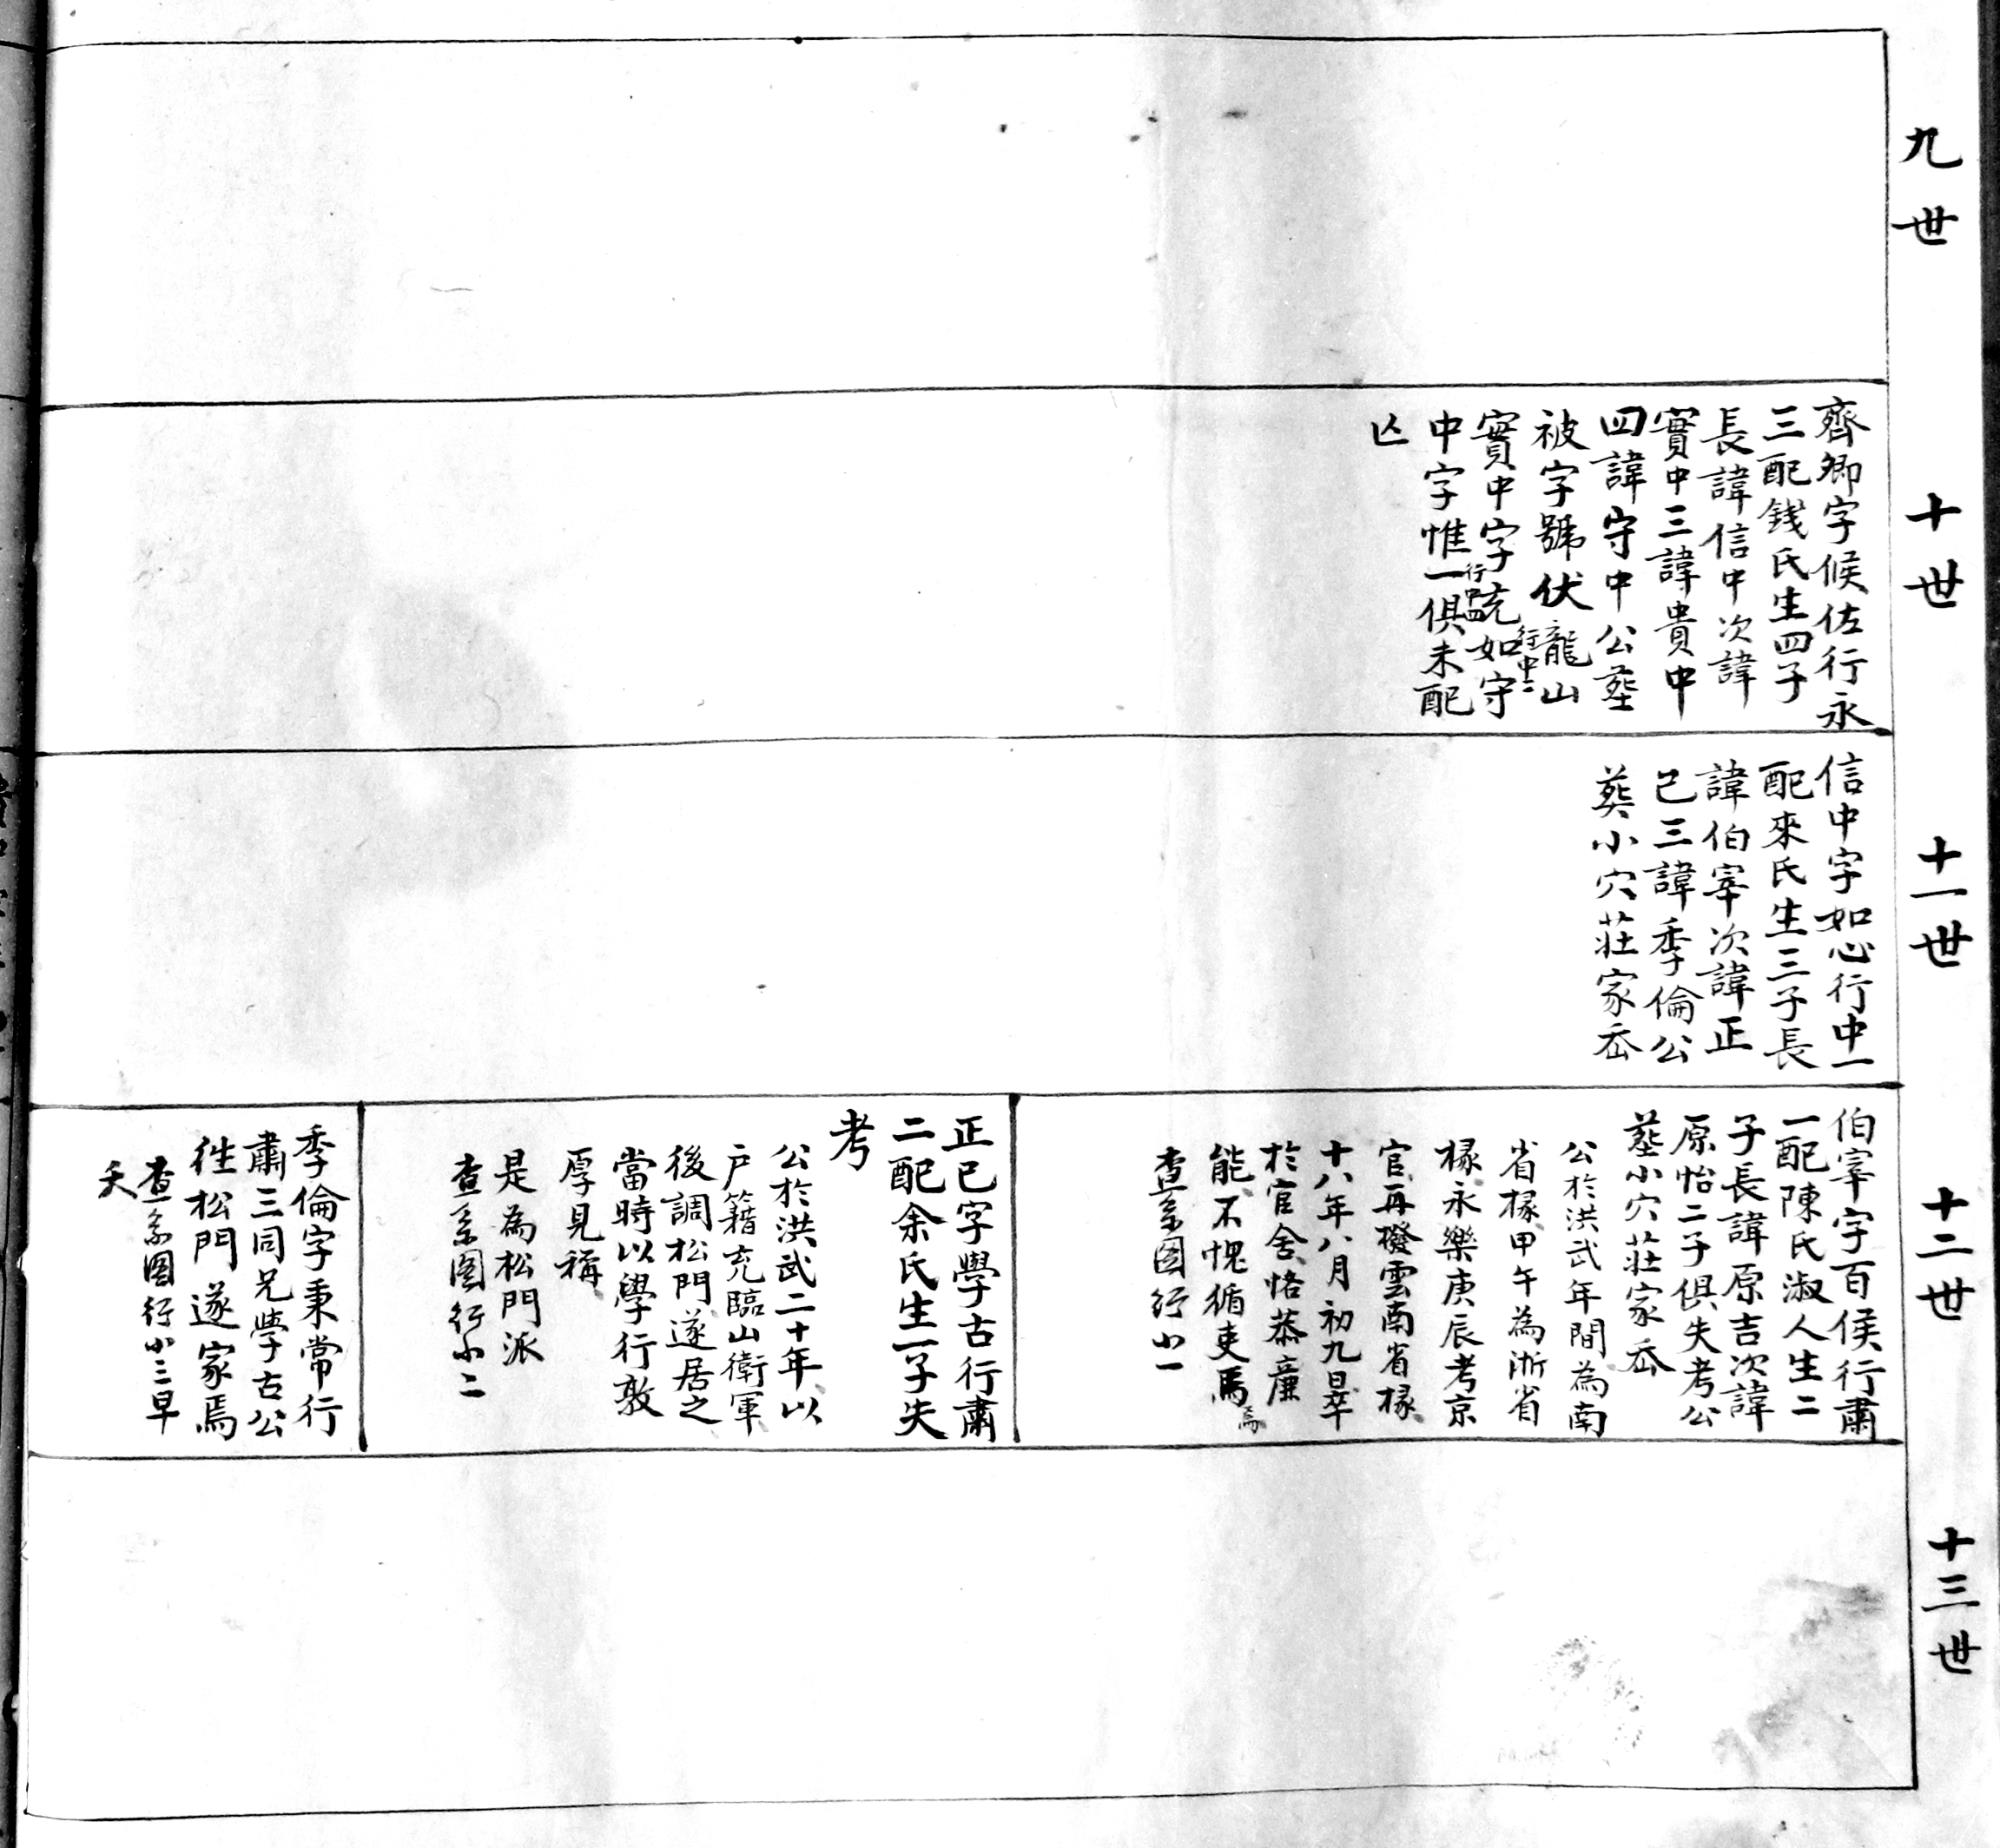 九世
十世
齊卿字候佐行永
三配錢氏生四子
長諱信中次諱
實中三諱貴中
四諱守中公塟
被字號伏龍山
行中二
實中字充如守
行中四
中字惟一俱未配
亾
十一世
信中字如心行中一
配來氏生三子長
諱伯宰次諱正
己三諱季倫公
葬小穴莊家岙
十二世
伯宰字百侯行肅
一配陳氏淑人生二
子長諱原吉次諱
原怡二子俱失考公
塟小穴莊家岙
公於洪武年間為南
省椽甲午為浙省
椽永樂庚辰考京
官再撥雲南省椽
十八年八月初九日卒
於官舍恪恭廉
能不愧循吏焉
焉
查系圖行小一
正己字學古行肅
二配余氏生一子失
考
公於洪武二十年以
户籍充臨山衛軍
後調松門遂居之
當時以學行敦
厚見稱
是為松門派
查系圖行小二
季倫字秉常行
肅三同兄學古公
徃松門遂家焉
查系圖行小三早
夭
十三世